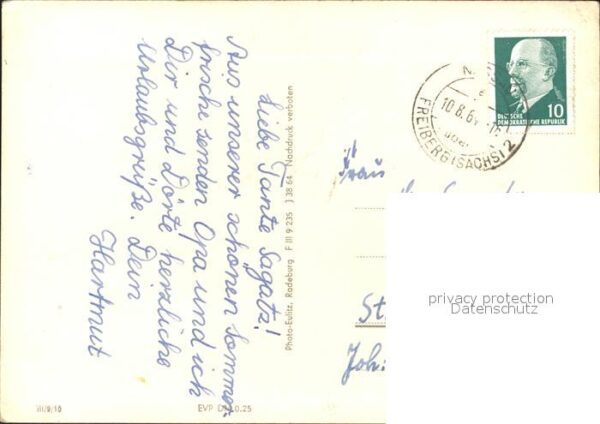 Liebe Tante Sagatz!
Aus unserer schönen Sommer-
frische senden Opa und ich
Dir und Dörte herzliche
Urlaubsgrüße. Dein
Hartmut
Photo-Eulitz, Radeburg F III 9 235 J 38 64 Nachdruck verboten
III/9/10
EVP DM 0.25
10
DEUTSCHE
DEMOKRATISCHE REPUBLIK
10.8.64
FREIBERG (SACHS) 2
Frau
St
Joh.
privacy protection
Datenschutz